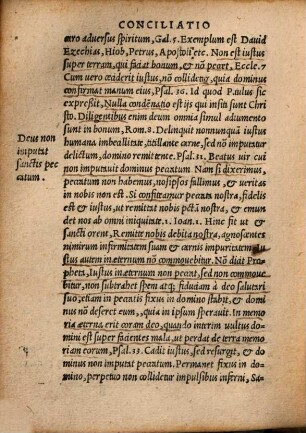 CONCILIATIO
aro adversus spiritum, Gal. 5. Exemplum est David
Ezechias, Hiob, Petrus, Apostoli etc. Non est iustus
super terram, qui faciat bonum, & nō peccet, Eccle. 7
Cum vero ceciderit iustus, nō collidetur, quia dominus
confirmat manum eius, Psal. 36. Id quod Paulus sic
expressit, Nulla condēnatio est ijs qui insiti sunt Chri
sto. Diligentibus enim deum omnia simul adiumento
sunt in bonum, Rom. 8. Delinquit nonnunquā iustus
humana imbecillitate, titillante carne, sed nō imputatur
delictum, domino remittente. Psal. 31. Beatus vir cui
non imputavit dominus peccatum. Nam si dixerimus,
peccatum non habemus, nosipsos fallimus, & veritas
in nobis non est. Si confiteamur peccata nostra, fidelis
est & iustus, ut remittat nobis pctā nostra, & emun
det nos ab omni iniquitate. 1. Ioan. 1. Hinc fit ut &
sancti orent, Remitte nobis debita nostra, agnoscentes
nimirum infirmitatem suam & carnis impuritatem. Iu
stus autem in aeternum nō commovebitur. Nō dīat Pro
pheta, Iustus in aeternum non peccat, sed non commove
bitur, non subtrahet spem atq; fiduciam à deo salutari
suo, etiam in peccatis fixus in domino stabit, & domi
nus nō deseret eum, quia in ipsum speravit. In memo
ria aeterna erit coram deo, quando interim vultus domi
ni est super facientes mala, ut perdat de terra memo
riam eorum, Psal. 33. Cadit iustus, sed resurgit, & do
minus non imputat peccatum. Permanet fixus in do
mino, perpetuo non collidetur impulsibus inferni, Sa-
Deus non
imputat
sanctis pec
catum.